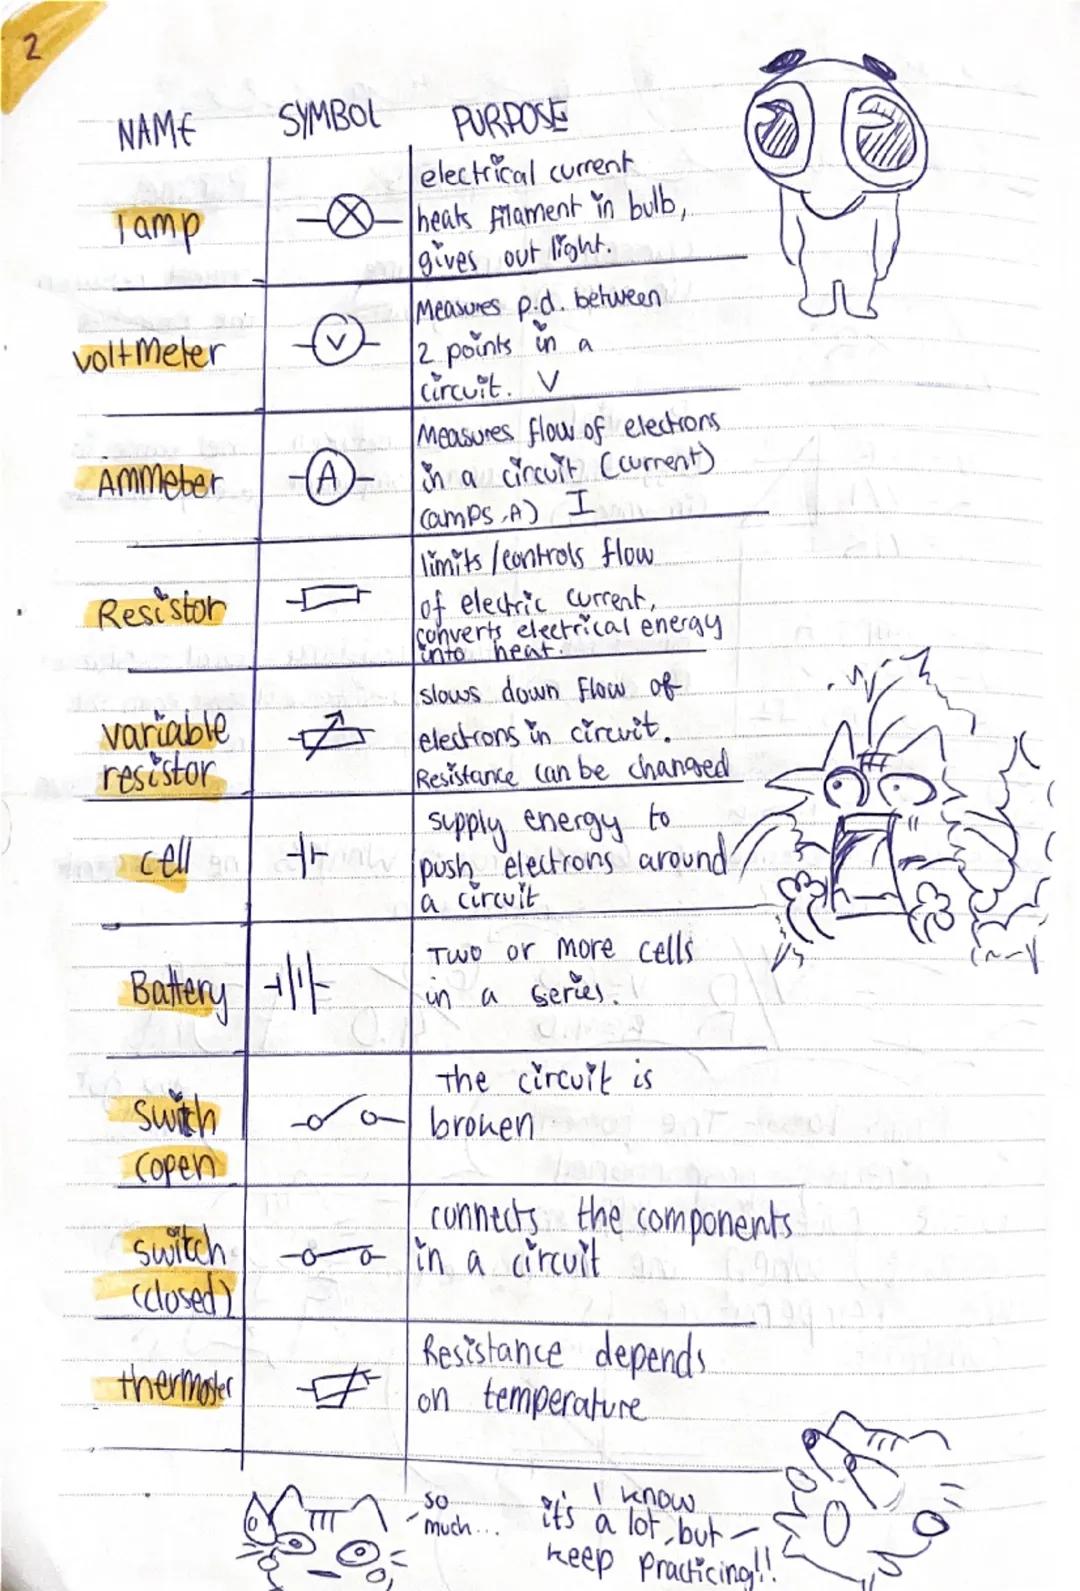 2
NAME SYMBOL PURPOSE
lamp
electrical current
heats filament in bulb,
gives out light.
voltMeter
V
Measures p.d. between
2 points in a
circuit. V
AMMeter
A
Measures flow of electrons
in a circuit (current)
(amps, A) I
Resistor
limits/controls flow
of electric current,
converts electrical energy
into heat.
variable
resistor
slows down flow of
electrons in circuit.
Resistance can be changed
cell
supply energy to
push electrons around
a circuit
Battery
Two or more cells
in a series.
Switch
(open
the circuit is
broken
switch
(closed)
connects the components
in a circuit
thermoster
Resistance depends
on temperature
so
much...
I know
it's a lot, but
keep practicing!!